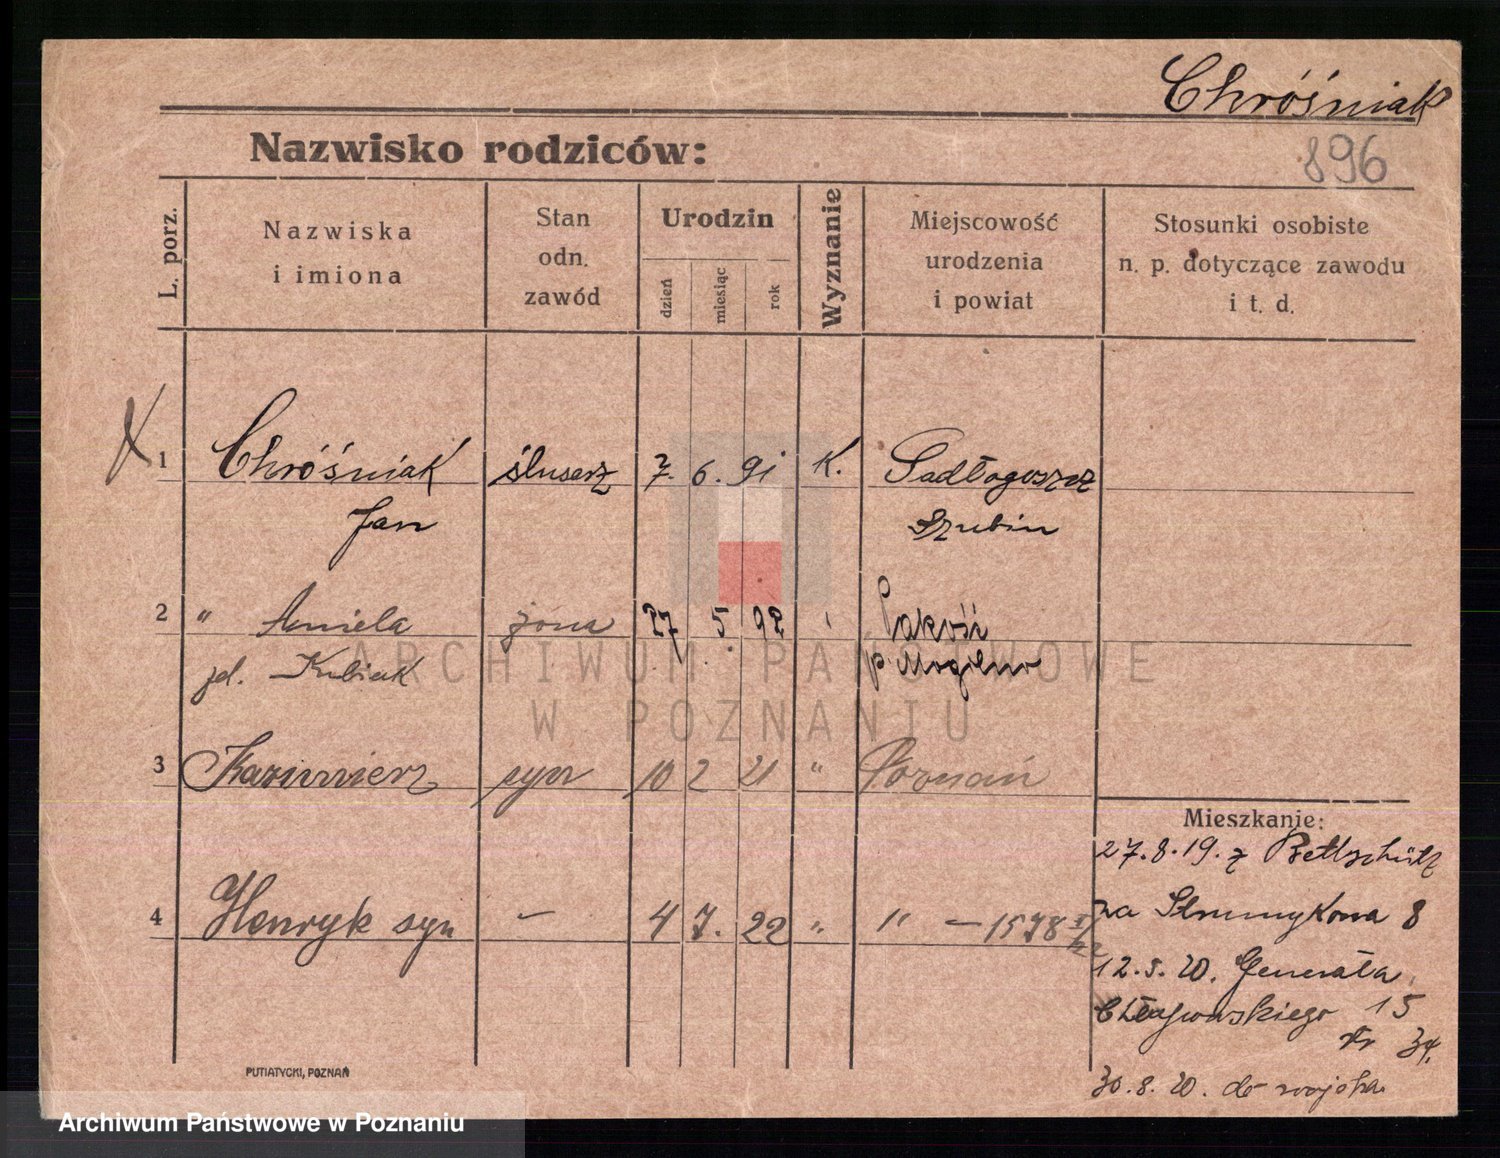 Chróśniak
896
Nazwisko rodziców:
L. porz.
Nazwiska
i imiona
Stan
odn.
zawód
Urodzin
dzień
miesiąc
rok
Wyznanie
Miejscowość
urodzenia
i powiat
Stosunki osobiste
n. p. dotyczące zawodu
i t. d.
1 Chróśniak ślusarz 7. 6. 91 K. Sadłogoszcz
Jan Szubin
2 " Aniela żona 27 5 92 Pakość
zd. Kubiak p. Mogilno
3 Kazimierz syn 10 2 21 " Poznań
4 Henryk syn — 4 7. 22 " " — 1578
Mieszkanie:
27.8.19. z
na Strumykowa 8
12.5.20. Generała
Chłapowskiego 15
34.
30.8.20. do wojska
PUTIATYCKI, POZNAŃ
ARCHIWUM PAŃSTWOWE
W POZNANIU
Archiwum Państwowe w Poznaniu